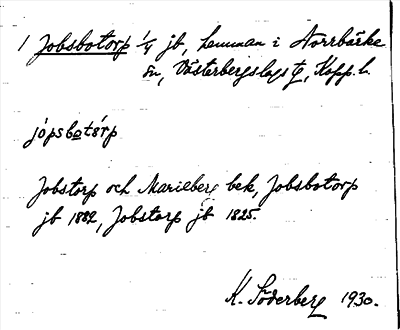 1 Jobsbotorp 1/4 jb, hemman i Norrbärke
sn, Västerbergslags tg, Kopp. l.
jópsbotórp
Jobstorp och Marieberg bek, Jobsbotorp
jb 1882, Jobstorp jb 1825.
K. Söderberg 1930.